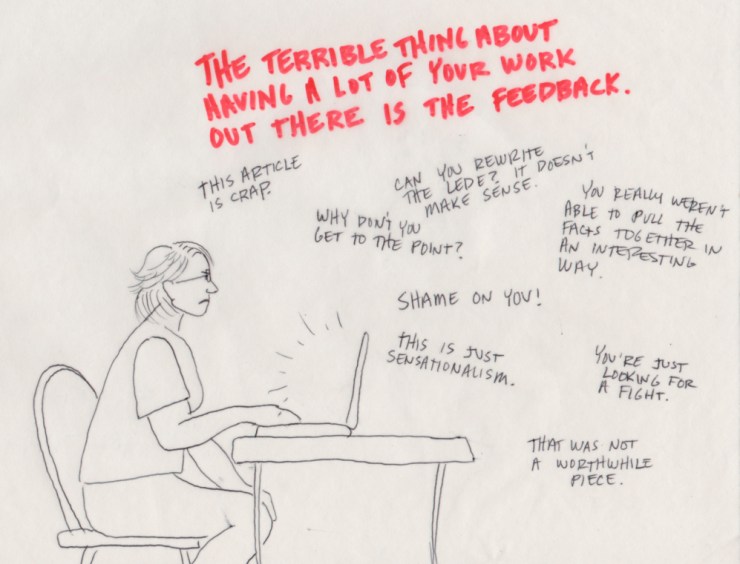 THE TERRIBLE THING ABOUT
HAVING A LOT OF YOUR WORK
OUT THERE IS THE FEEDBACK.
THIS ARTICLE
IS CRAP.
CAN YOU REWRITE
THE LEDE? IT DOESN'T
MAKE SENSE.
WHY DON'T YOU
GET TO THE POINT?
YOU REALLY WEREN'T
ABLE TO PULL THE
FACTS TOGETHER IN
AN INTERESTING
WAY.
SHAME ON YOU!
THIS IS JUST
SENSATIONALISM.
YOU'RE JUST
LOOKING FOR
A FIGHT.
THAT WAS NOT
A WORTHWHILE
PIECE.